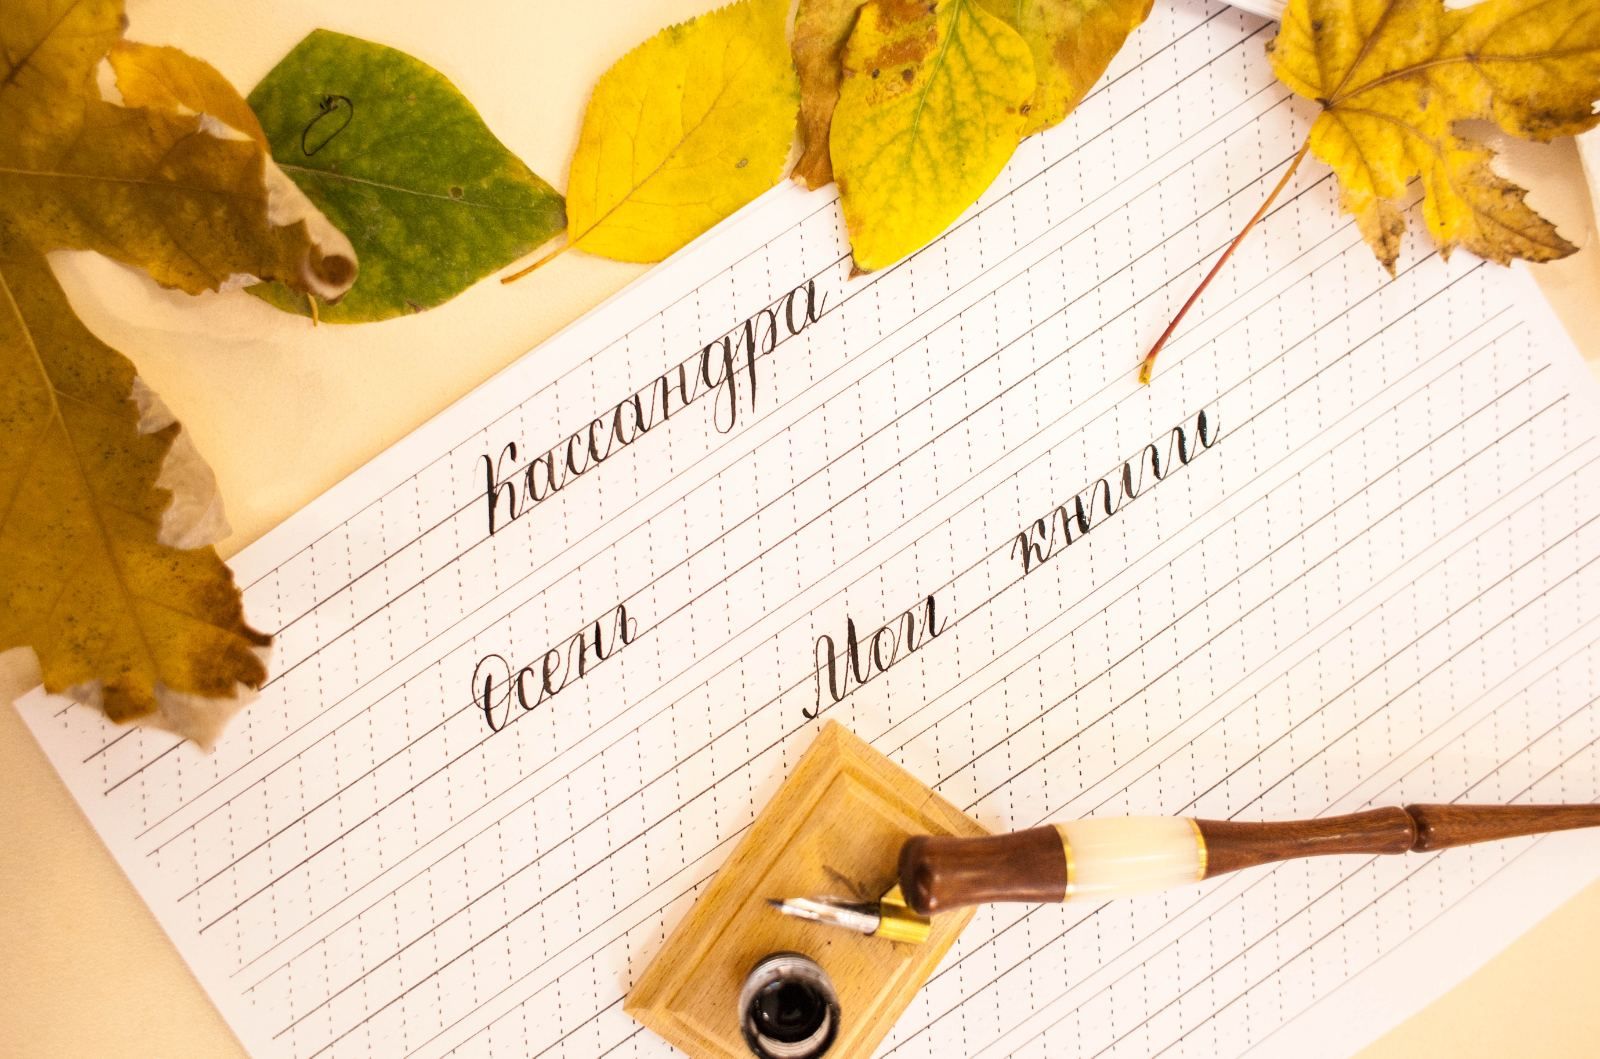 Кассандра
Осень
Мои книги